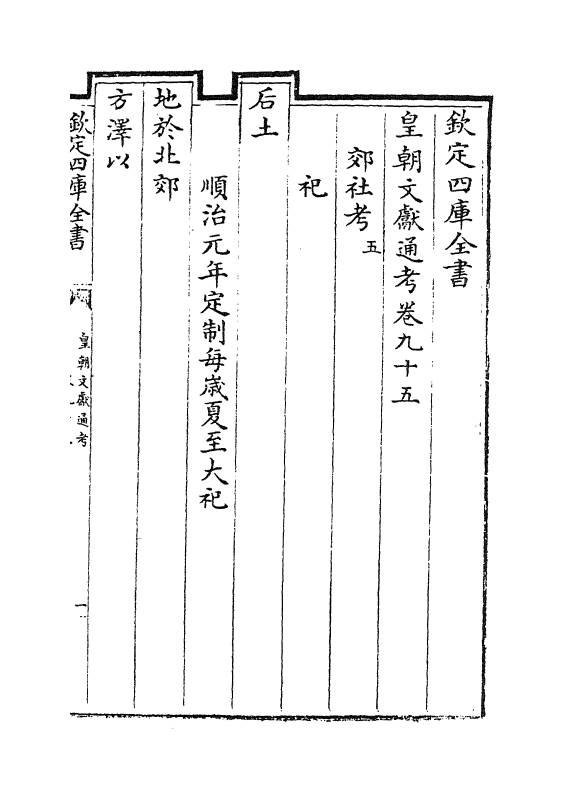 欽定四庫全書
皇朝文獻通考卷九十五
郊社考五
祀
后土
順治元年定制每歲夏至大祀
地於北郊
方澤以
欽定四庫全書
皇朝文獻通考
一